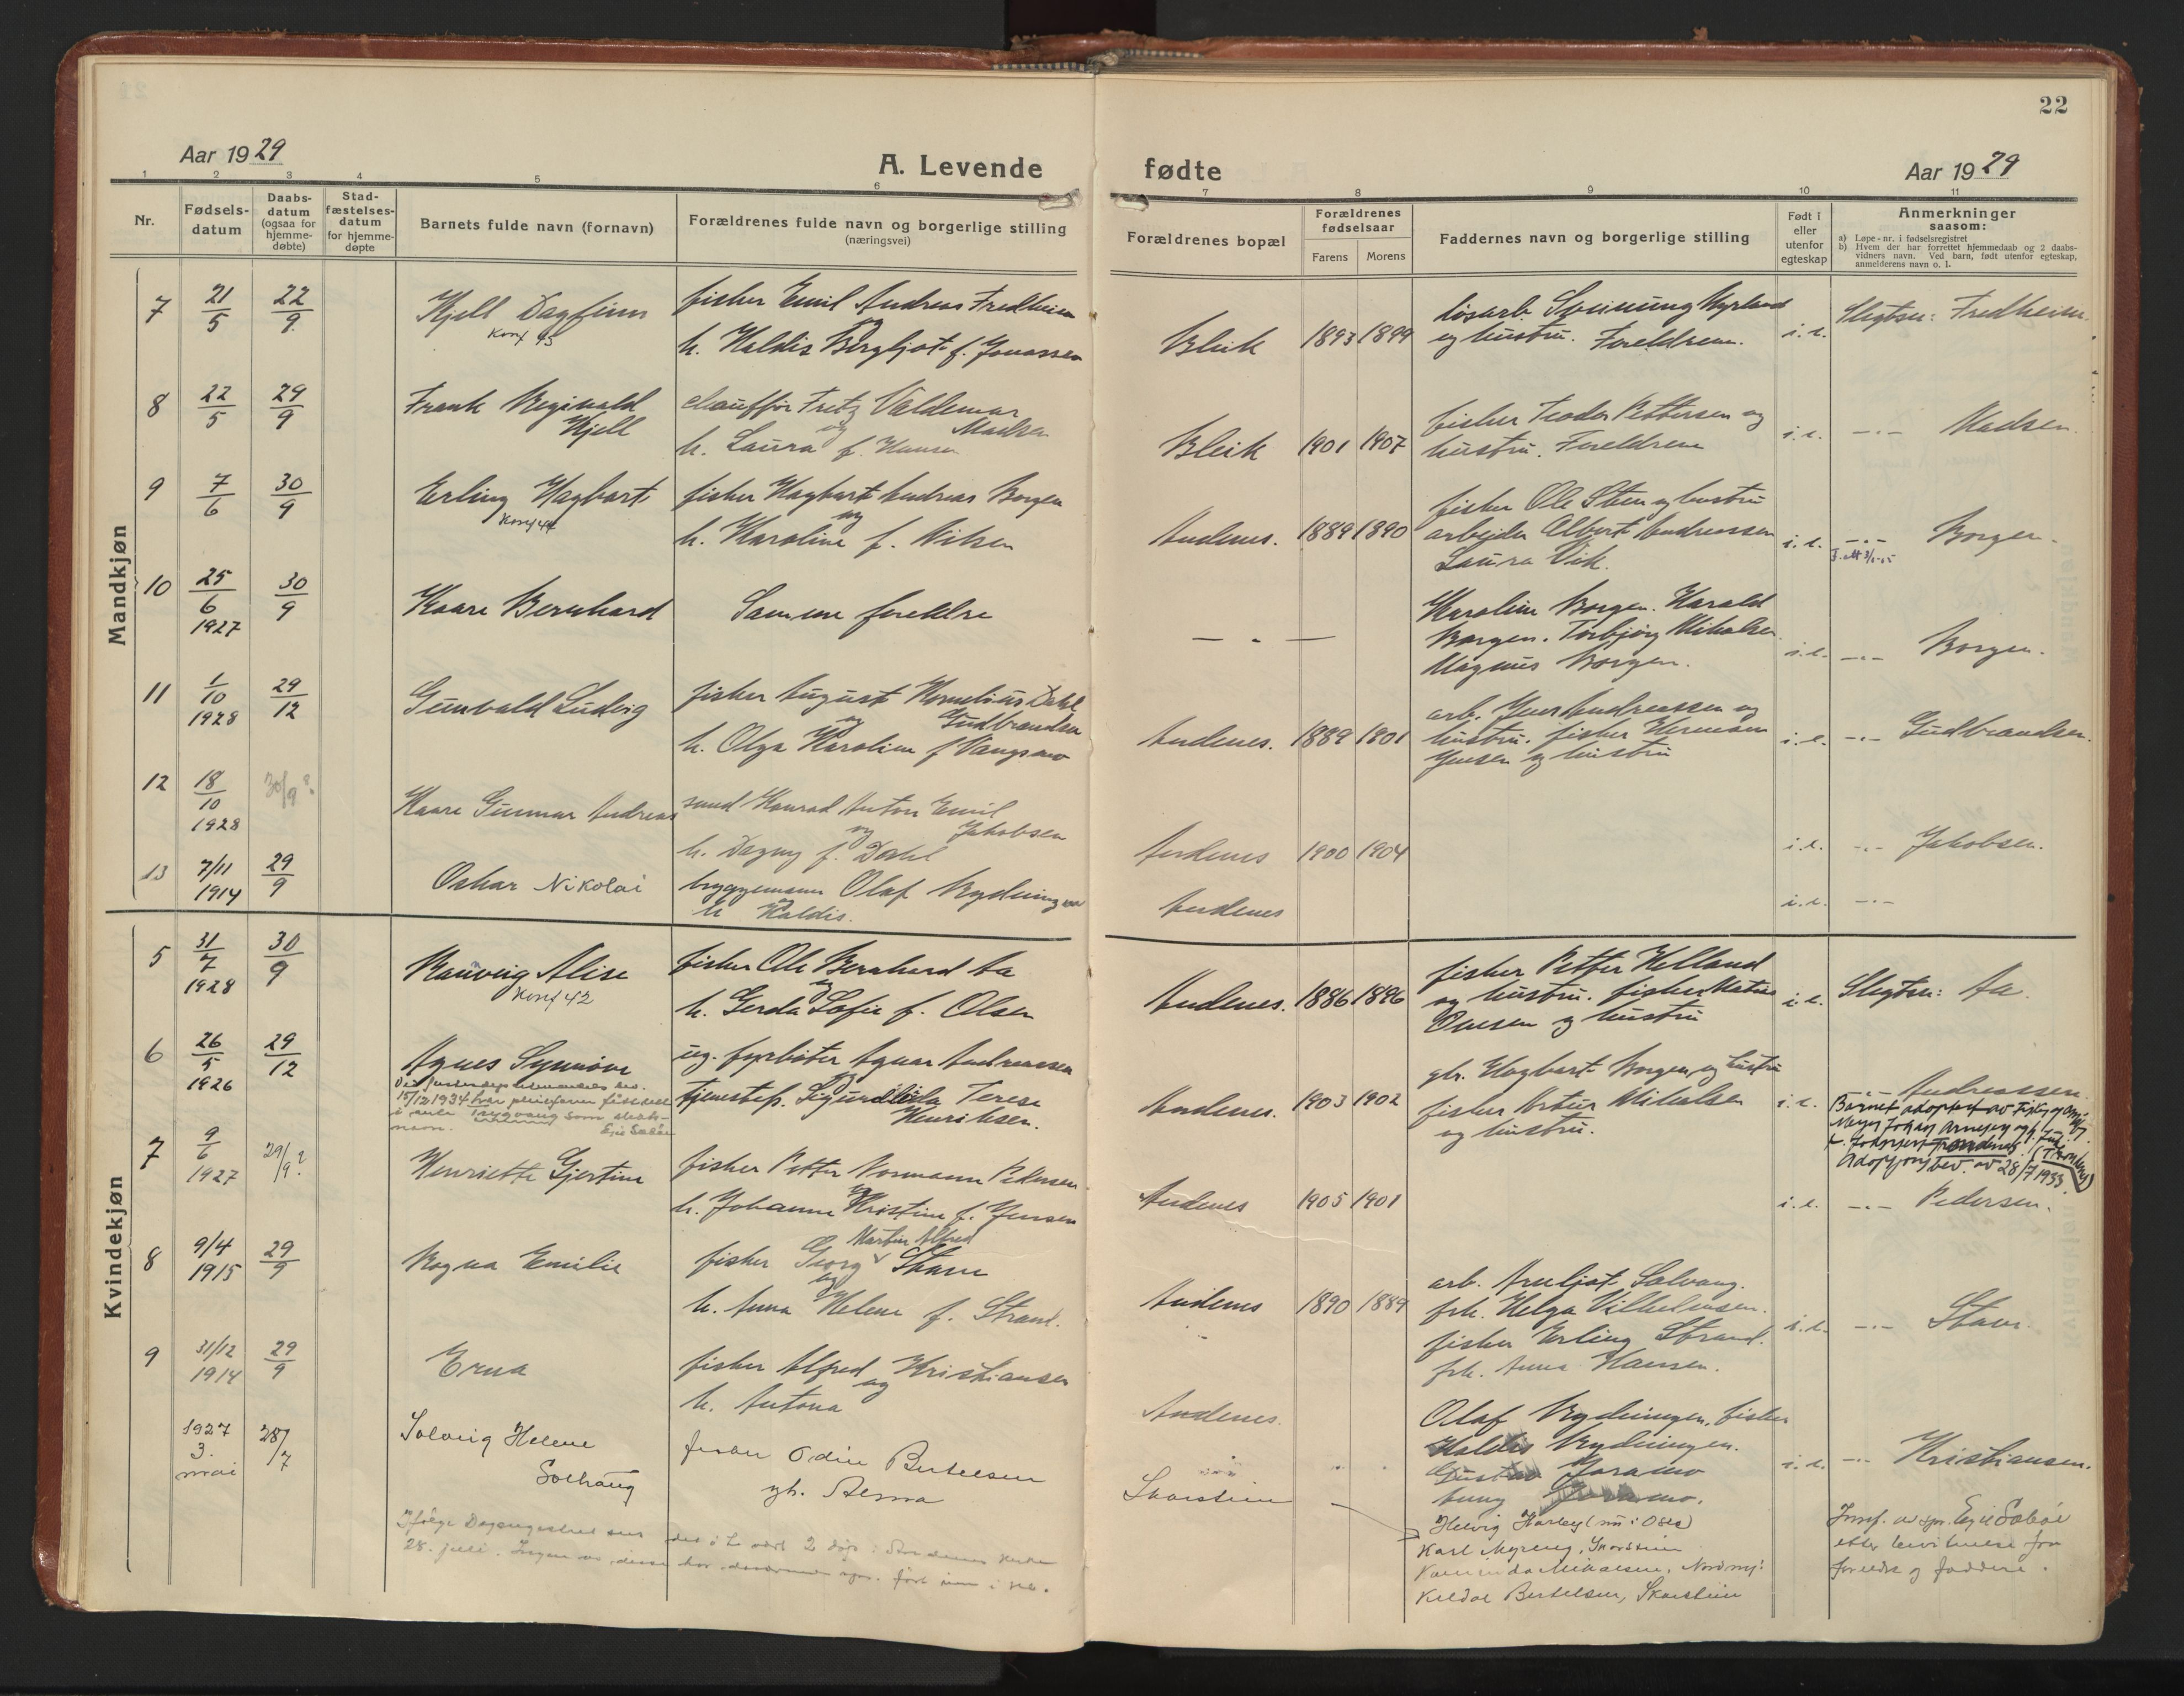 22
Aar 1929
A. Levende
fødte
Aar 1929
1 2 3 4 5 6 7 8 9 10 11
Nr.
Fødsels-
datum
Daabs-
datum
(ogsaa for
hjemme-
døbte)
Stad-
fæstelses-
datum
for hjemme-
døpte
Barnets fulde navn (fornavn)
Forældrenes fulde navn og borgerlige stilling
(næringsvei)
Forældrenes bopæl
Forældrenes
fødselsaar
Farens Morens
Faddernes navn og borgerlige stilling
Født i
eller
utenfor
egteskap
Anmerkninger
saasom:
a) Løpe-nr. i fødselsregistret
b) Hvem der har forrettet hjemmedaab og 2 daabs-
vidners navn. Ved barn, født utenfor egteskap,
anmelderens navn o. l.
Mandkjøn
7 21/5 22/9 Kjell Dagfinn
Konf 43
fisker Emil Andreas Fredheim
og
h. Haldis Bergljot f. Jonassen
Bleik 1893 1899
løsarb. Steinung Myrland
og hustru. Foreldrene.
i.e. Slegtsn: Fredheim.
8 22/5 29/9 Frank Reginald
Kjell
chauffør Fritz Valdemar
og Madsen
h. Laura f. Hansen
Bleik 1901 1907
fisker Teodor Pettersen og
hustru. Foreldrene
i.e. -"- Madsen.
9 7/6 30/9 Erling Hagbart
Konf 44
fisker Hagbart Andreas Borgen
og
h. Karoline f. Nilsen
Andenes. 1889 1890
fisker Ole Steen og hustru
arbeider Albert Andreassen
Laura Vik.
i.e. -"- Borgen.
10 25/6 1927 30/9 Kaare Bernhard
Samme foreldre
— " —
Karoline Borgen. Harald
Borgen. Torbjørg Mikalsen
Magnus Borgen.
i.e. -"- Borgen.
11 1/10 1928 29/12 Gunvald Ludvig
fisker August Kornelius Dahl
og Gudbrandsen
h. Olga Karoline f Vangsmo
Andenes. 1889 1901
arb. Jens Andreassen og
hustru. fisker Hermann
Jensen og hustru
i.e. -"- Gudbrandsen.
12 18/10 1928 30/9? Kaare Gunnar Andreas
smed Konrad Anton Emil
og Jakobsen
h. Dagny f. Dahl
Andenes 1900 1904
i.e. -"- Jakobsen.
13 7/11 1914 29/9 Oskar Nikolai
bryggemann Olaf Rydningen
og
h Haldis.
Andenes
i.e. -"-
Kvindekjøn
5 31/7 1928 30/9 Rannveig Alise
Konf 42
fisker Ole Bernhard Aa
og
h. Gerda Sofie f. Olsen
Andenes. 1886 1896
fisker Petter Helland
og hustru. fisker Matias
Ovesen og hustru
i.e. Slegtsn: Aa.
6 26/5 1926 29/12 Agnes Synnøve
15/12 1934
som slekts-
navn. Egil Sæbøe
ug. fyrbøter Agnar Andreassen
og
tjenestep. Sigurdlilla Terese
Henriksen.
Andenes. 1903 1902
gbr. Hagbart Borgen og hustru
fisker Artur Mikalsen
og hustru.
i.e. -"- Andreassen.
Barnet adoptert av
Meyer Johan Arnesen og h.
f. Johansen Trondenes.
Adopsjonsbev. av 28/7 1933.
7 9/6 1927 29/9? Henriette Gjertine
fisker Petter Normann Pedersen
og
h. Johanne Kristine f. Jensen
Andenes 1905 1901
i.e. -"- Pedersen.
8 9/4 1915 29/9 Ragna Emilie
Martin Alfred
fisker Georg Stave
og
h. Anna Helene f. Strand.
Andenes 1890 1889
arb. Arnljot Solvang.
frk. Helga Vilhelmsen.
fisker Erling Strand.
frk. Anna Hansen.
i.e. -"- Stave.
9 31/12 1914 29/9 Erna
fisker Alfred Kristiansen
og
h. Antona
Andenes.
Olaf Rydningen, fisker
Haldis Rydningen.
Gustav Joramo
Joramo.
i.e. -"- Kristiansen.
1927
3.
mai
28/7
Solveig Helene
Solhaug
fisker Odin Bertelsen
gh. Alma
Skarstein
Helvig Harley (nu i Oslo)
Karl Myreng, Skarstein
Mikalsen, Nordmj.
Bertelsen, Skarstein
Innf. av spr. Egil Sæbøe
efter bevidnelse fra
foreldre og faddere.
Ifølge Dagregistret
28. juli. Ingen av disse